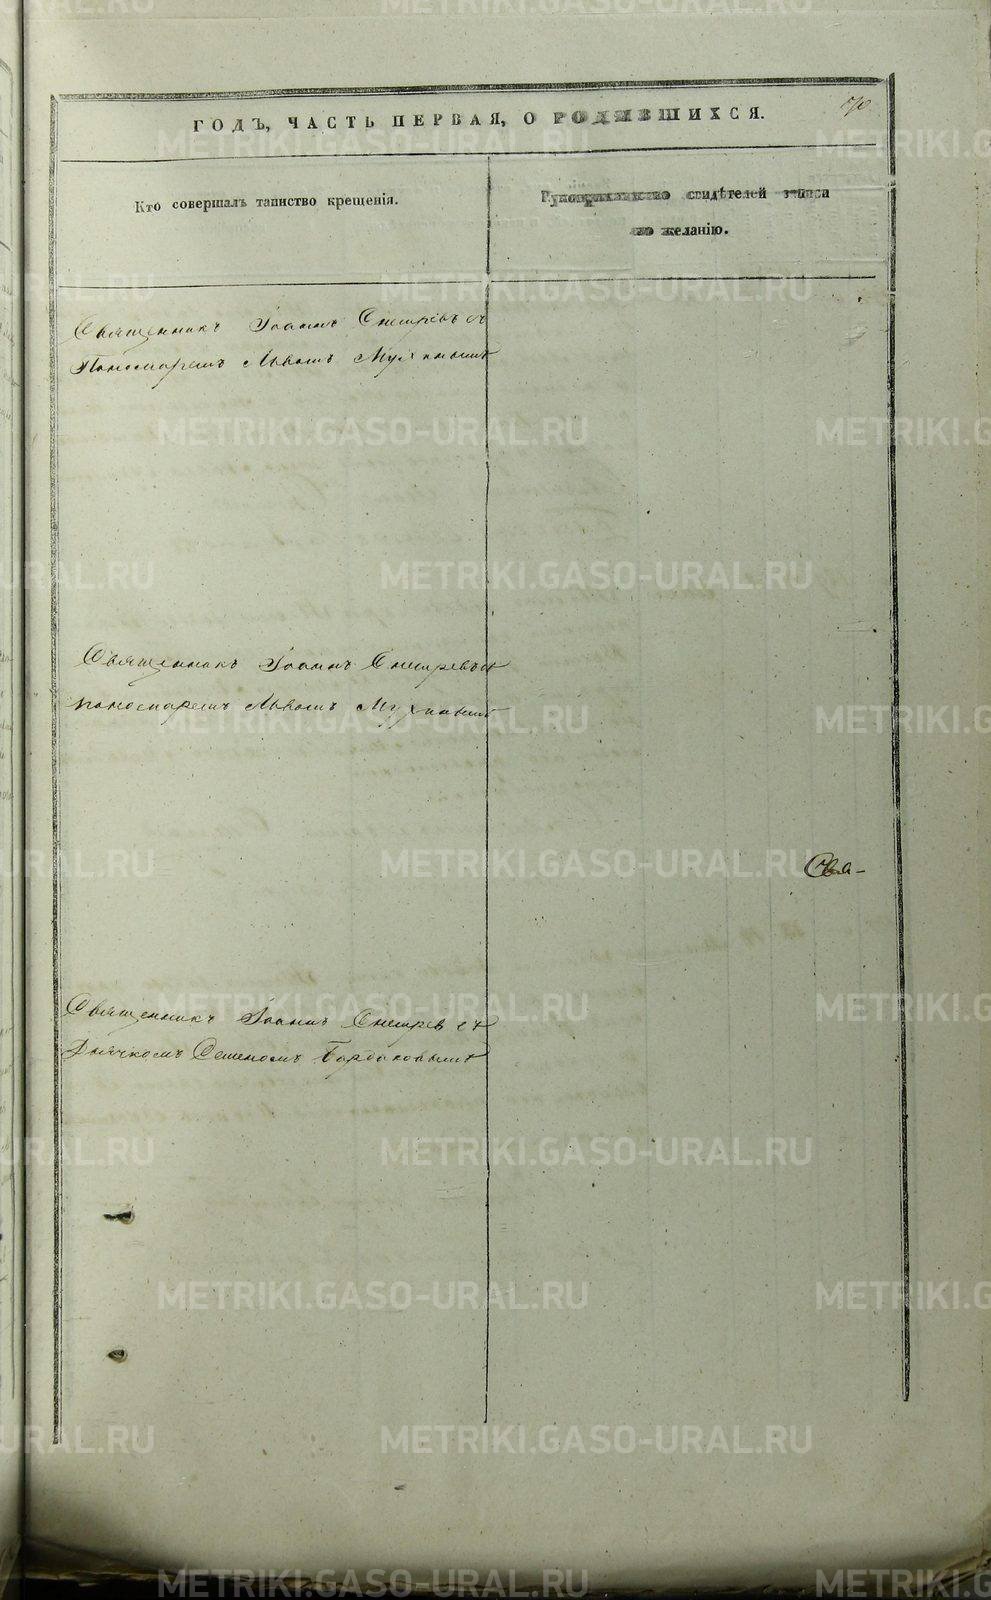 70
ГОДЪ, ЧАСТЬ ПЕРВАЯ, О РОДИВШИХСЯ.
Кто совершалъ таинство крещенія.
Рукоприкладство свидѣтелей записи
по желанію.
Священникъ Іоаннъ Снегирёвъ съ
Пономаремъ Львомъ
Священникъ Іоаннъ Снегиревъ съ
пономаремъ Львомъ
Свя-
Священникъ Іоаннъ Снегирев съ
Дьячкомъ Семеномъ
METRIKI.GASO-URAL.RU